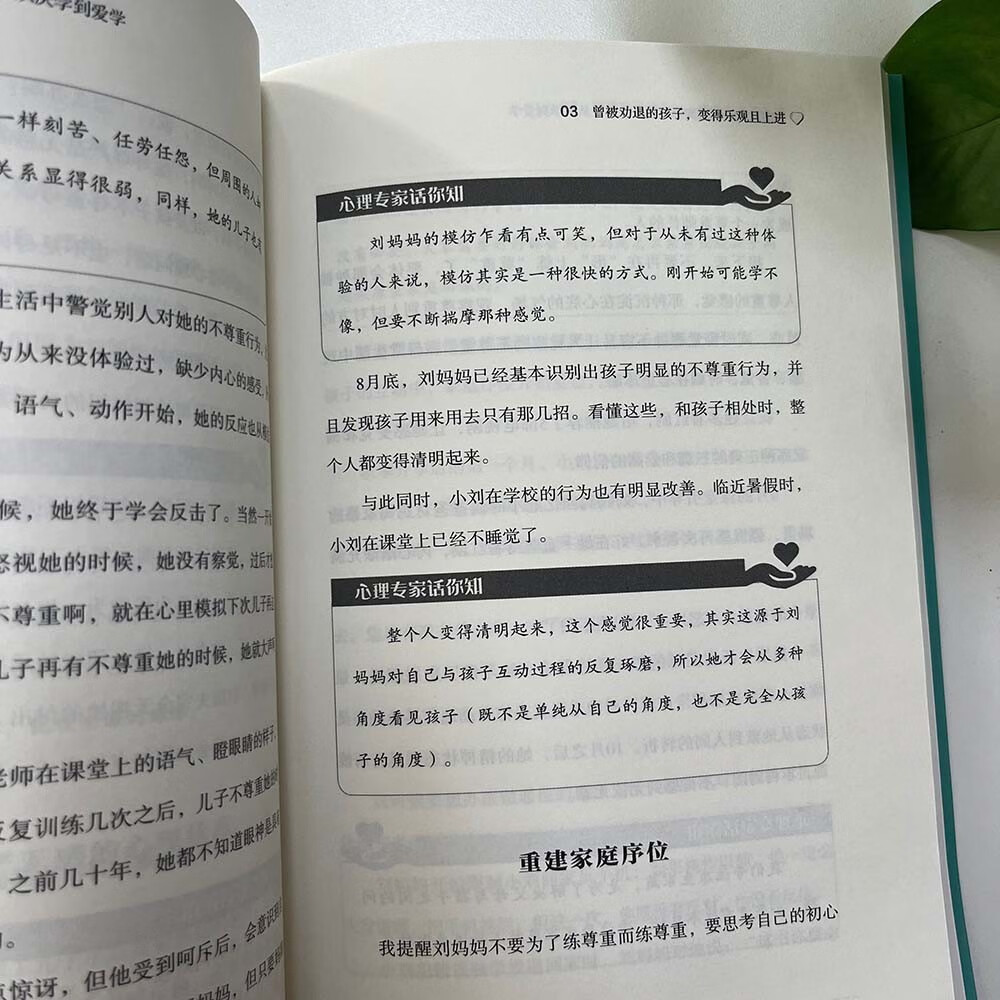 到爱学
一样刻苦、任劳任怨，但周围的人
关系显得很弱，同样，她的儿子也
生活中警觉别人对她的不尊重行为，
从来没体验过，缺少内心的感受，
语气、动作开始，她的反应也从
候，她终于学会反击了。当然一开
怒视她的时候，她没有察觉，过后才
不尊重啊，就在心里模拟下次儿子再
儿子再有不尊重她的时候，她就大声
老师在课堂上的语气、瞪眼睛的样子、
反复训练几次之后，儿子不尊重她的
之前几十年，她都不知道眼神是
的。
惊讶，但他受到呵斥后，会意识到
妈妈，但只要
03 曾被劝退的孩子，变得乐观且上进
心理专家话你知
刘妈妈的模仿乍看有点可笑，但对于从未有过这种体
验的人来说，模仿其实是一种很快的方式。刚开始可能学不
像，但要不断揣摩那种感觉。
8月底，刘妈妈已经基本识别出孩子明显的不尊重行为，并
且发现孩子用来用去只有那几招。看懂这些，和孩子相处时，整
个人都变得清明起来。
与此同时，小刘在学校的行为也有明显改善。临近暑假时，
小刘在课堂上已经不睡觉了。
心理专家话你知
整个人变得清明起来，这个感觉很重要，其实这源于刘
妈妈对自己与孩子互动过程的反复琢磨，所以她才会从多种
角度看见孩子（既不是单纯从自己的角度，也不是完全从孩
子的角度）。
重建家庭序位
我提醒刘妈妈不要为了练尊重而练尊重，要思考自己的初心